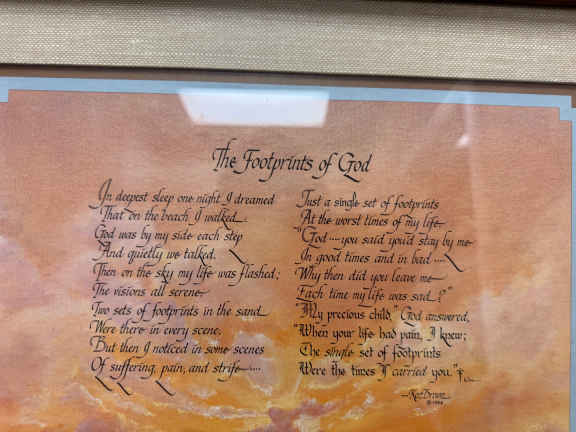 The Footprints of God
In deepest sleep one night I dreamed
That on the beach I walked.
God was by my side each step
And quietly we talked.
Then on the sky my life was flashed;
The visions all serene
Two sets of footprints in the sand
Were there in every scene.
But then I noticed in some scenes
Of suffering, pain, and strife ....
Just a single set of footprints
At the worst times of my life
"God .... you said you'd stay by me
In good times and in bad ....
Why then did you leave me
Each time my life was sad..?"
"My precious child," God answered,
"When your life had pain, I knew;
The single set of footprints
Were the times I carried you."